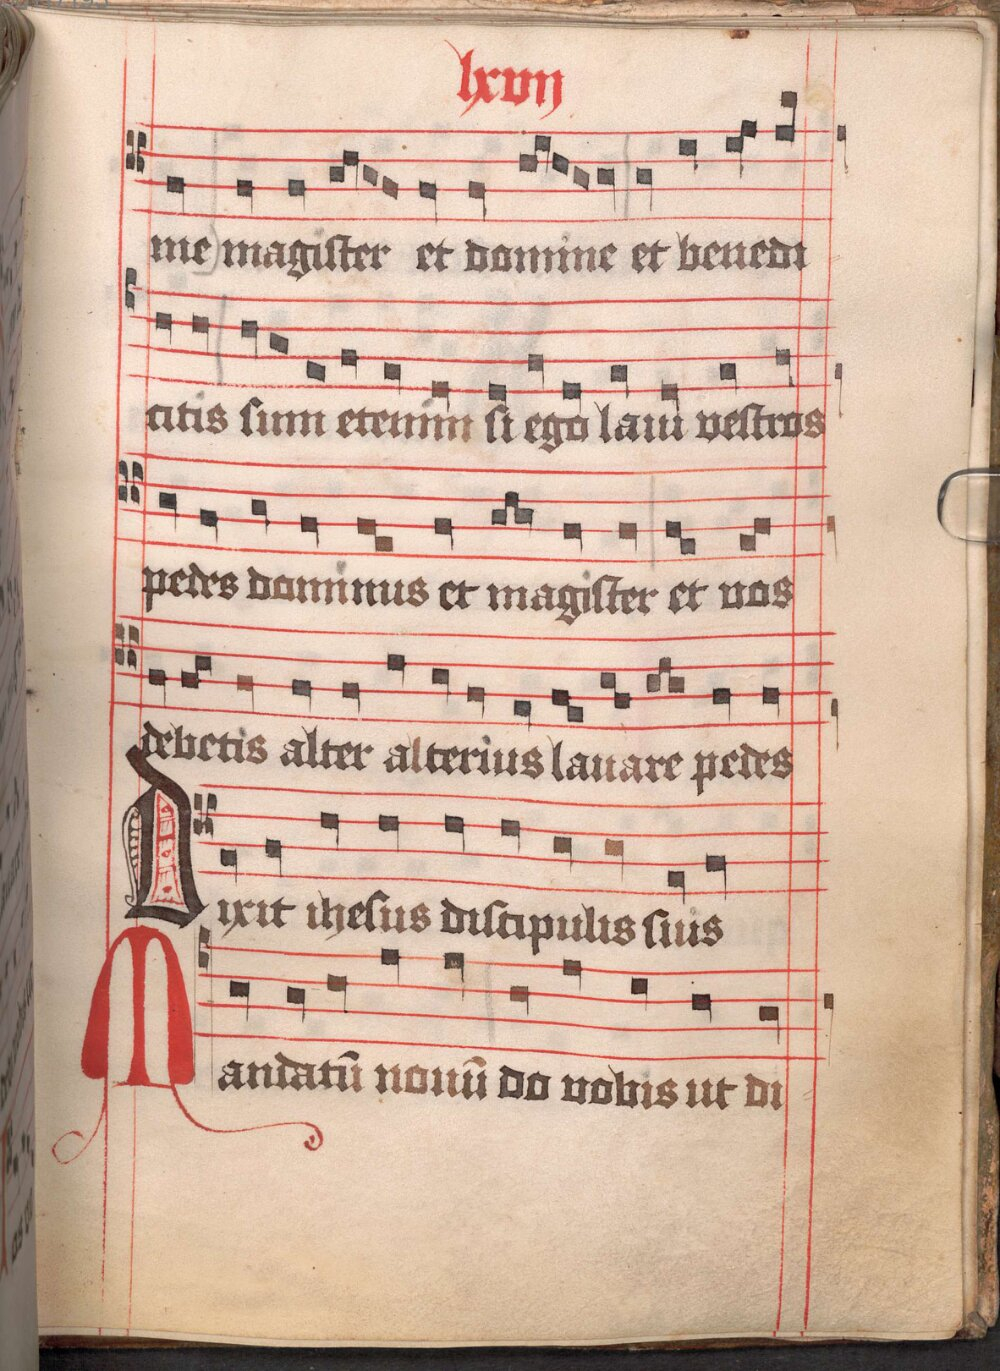 lxvij
me magister et domine et benedi
citis sum etenim si ego laui vestros
pedes dominus et magister et vos
debetis alter alterius lauare pedes
Dixit ihesus discipulis suis
Mandatū nouū do vobis ut di